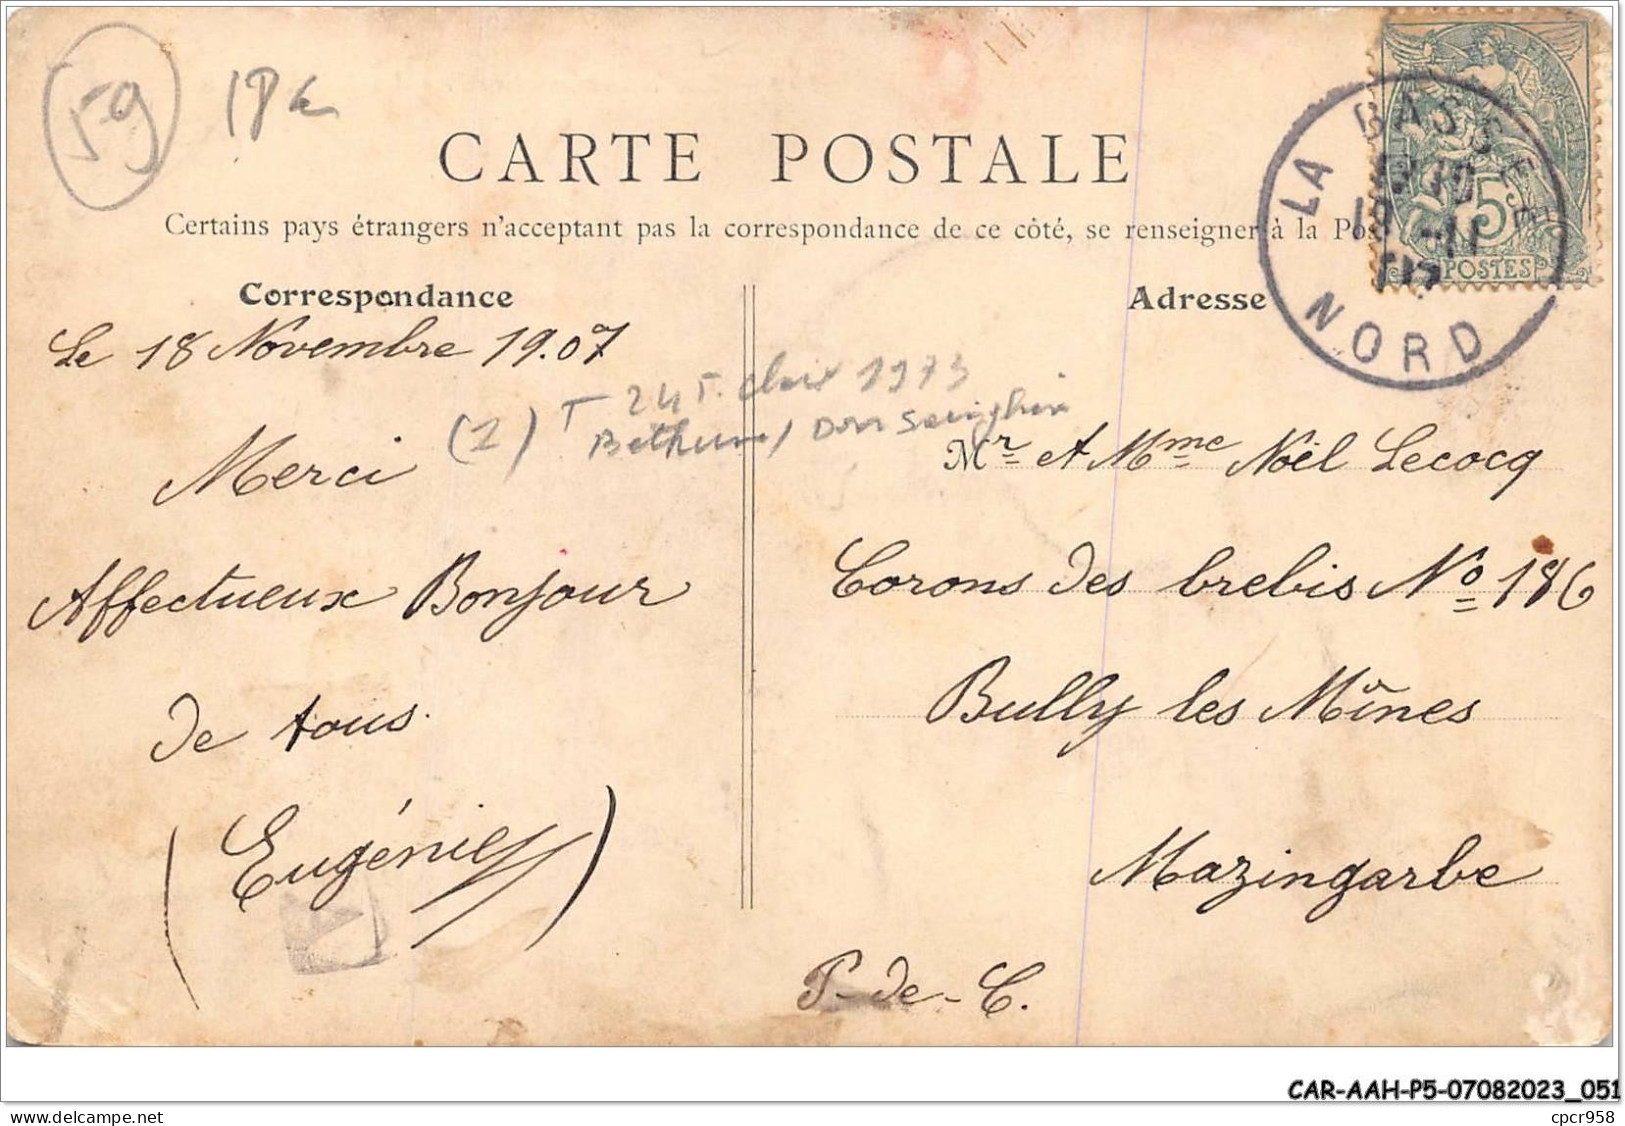 59
CARTE POSTALE
Certains pays étrangers n'acceptent pas la correspondance de ce côté, se renseigner à la Pos
Correspondance
Le 18 Novembre 1907
Merci
Affectueux Bonjour
de tous.
(Eugénie)
(1) T 24 T. 1973
Bethune /
Adresse
LA BASSEE
10
18 -11
07
NORD
5
POSTES
Mr et Mme Noël Lecocq
Corons des brebis No 186
Bully les Mînes
Mazingarbe
P-de-C.
CAR-AAH-P5-07082023_051
delcampe.net
cpcr958